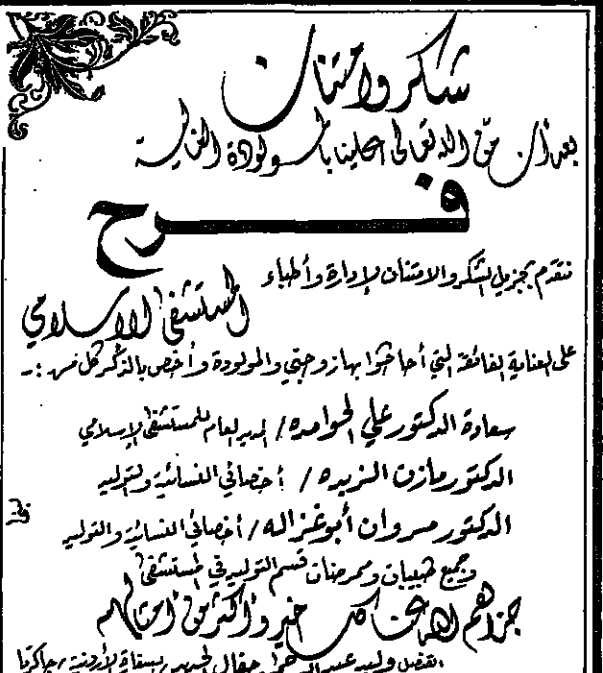 شكر وامتنان
بعد أن منّ الله تعالى علينا بالمولودة الغالية
فرح
نتقدم بجزيل الشكر والامتنان لإدارة وأطباء
المستشفى الإسلامي
على العناية الفائقة التي أحاطوا بها زوجتي والمولودة وأخص بالذكر كل من :-
سعادة الدكتور علي الحوامده / المدير العام للمستشفى الإسلامي
الدكتور مازن الزبده / أخصائي النسائية والتوليد
الدكتور مروان أبو غزاله / أخصائي النسائية والتوليد
وجميع طبيبات وممرضات قسم التوليد في المستشفى
جزاهم الله عنا كل خير وأكثر من أمثالهم
وليد عبد الرحمن جفال الحديد / السفارة الأردنية / جاكرتا